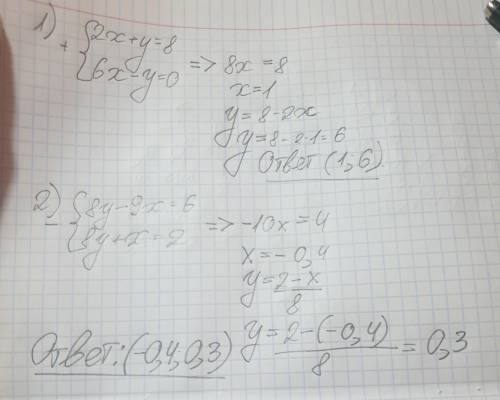 1) + { 2x+y=8
6x-y=0 => 8x=8
x=1
y=8-2x
y=8-2·1=6
Ответ (1;6)
2) - { 8y-9x=6
8y+x=2 => -10x=4
x=-0,4
y=2-x/8
y=2-(-0,4)/8=0,3
Ответ: (-0,4;0,3)